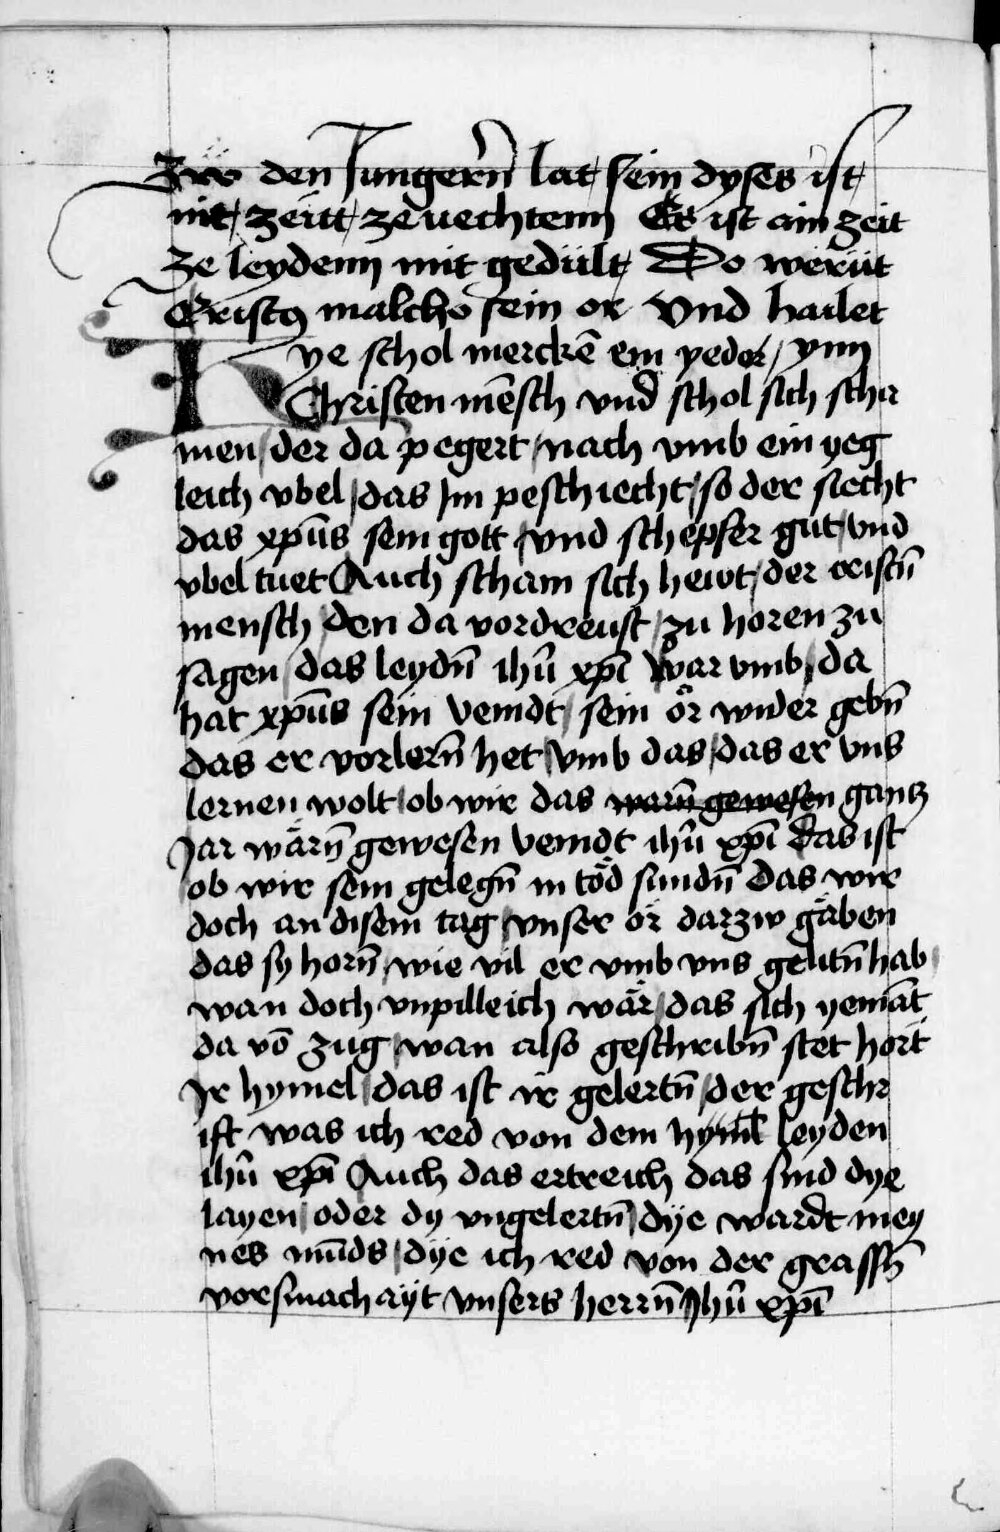 Zw den Jungern̄ lat sein dyses ist
nit zeitt ze vechtenn Es ist ain zeit
ze leydenn mit gedült Do werüt
Cristꝯ malcho sein or Vnd hailet
Hye schol merckē ein yeder ynn
Christen mēsch vnd schol sich scha
men der da pegert nach vmb ein yeg
leich vbel das Jm peschiecht so der siecht
das xp̄us sein gott vnd schepfer gut vnd
vbel tuet Auch scham sich hewt der cristn̄
mensch den da vordreust zu horen zu
sagen das leydn̄ ihū xp̄i war vmb da
hat xp̄us sein veindt sein ör wider gebn̄
das er vorlern̄ het vmb das das er vns
lernen wolt ob wir das warn̄ gewesen gantz
Jar wärn̄ gewesen veindt ihū xp̄i das ist
ob wir sein gelegn̄ in töd sundn̄ das wir
doch an disem tag vnser ör darzw gäben
das sy horn̄ wie vil er vmb vns gelitn̄ hab
wan doch vnpilleich wär das sich yemāt
da vō zug wan also geschribn̄ stet hört
Jr hymel das ist ir gelertn̄ der geschr
ift was ich red von dem hyml̄ leyden
ihū xp̄i Auch das ertreich das sind dye
layen oder dy vngelertn̄ dye wardt mey
nes mūds dye ich red von der grassn̄
vorsmachayt vnsers herrn̄ Jhū xp̄i